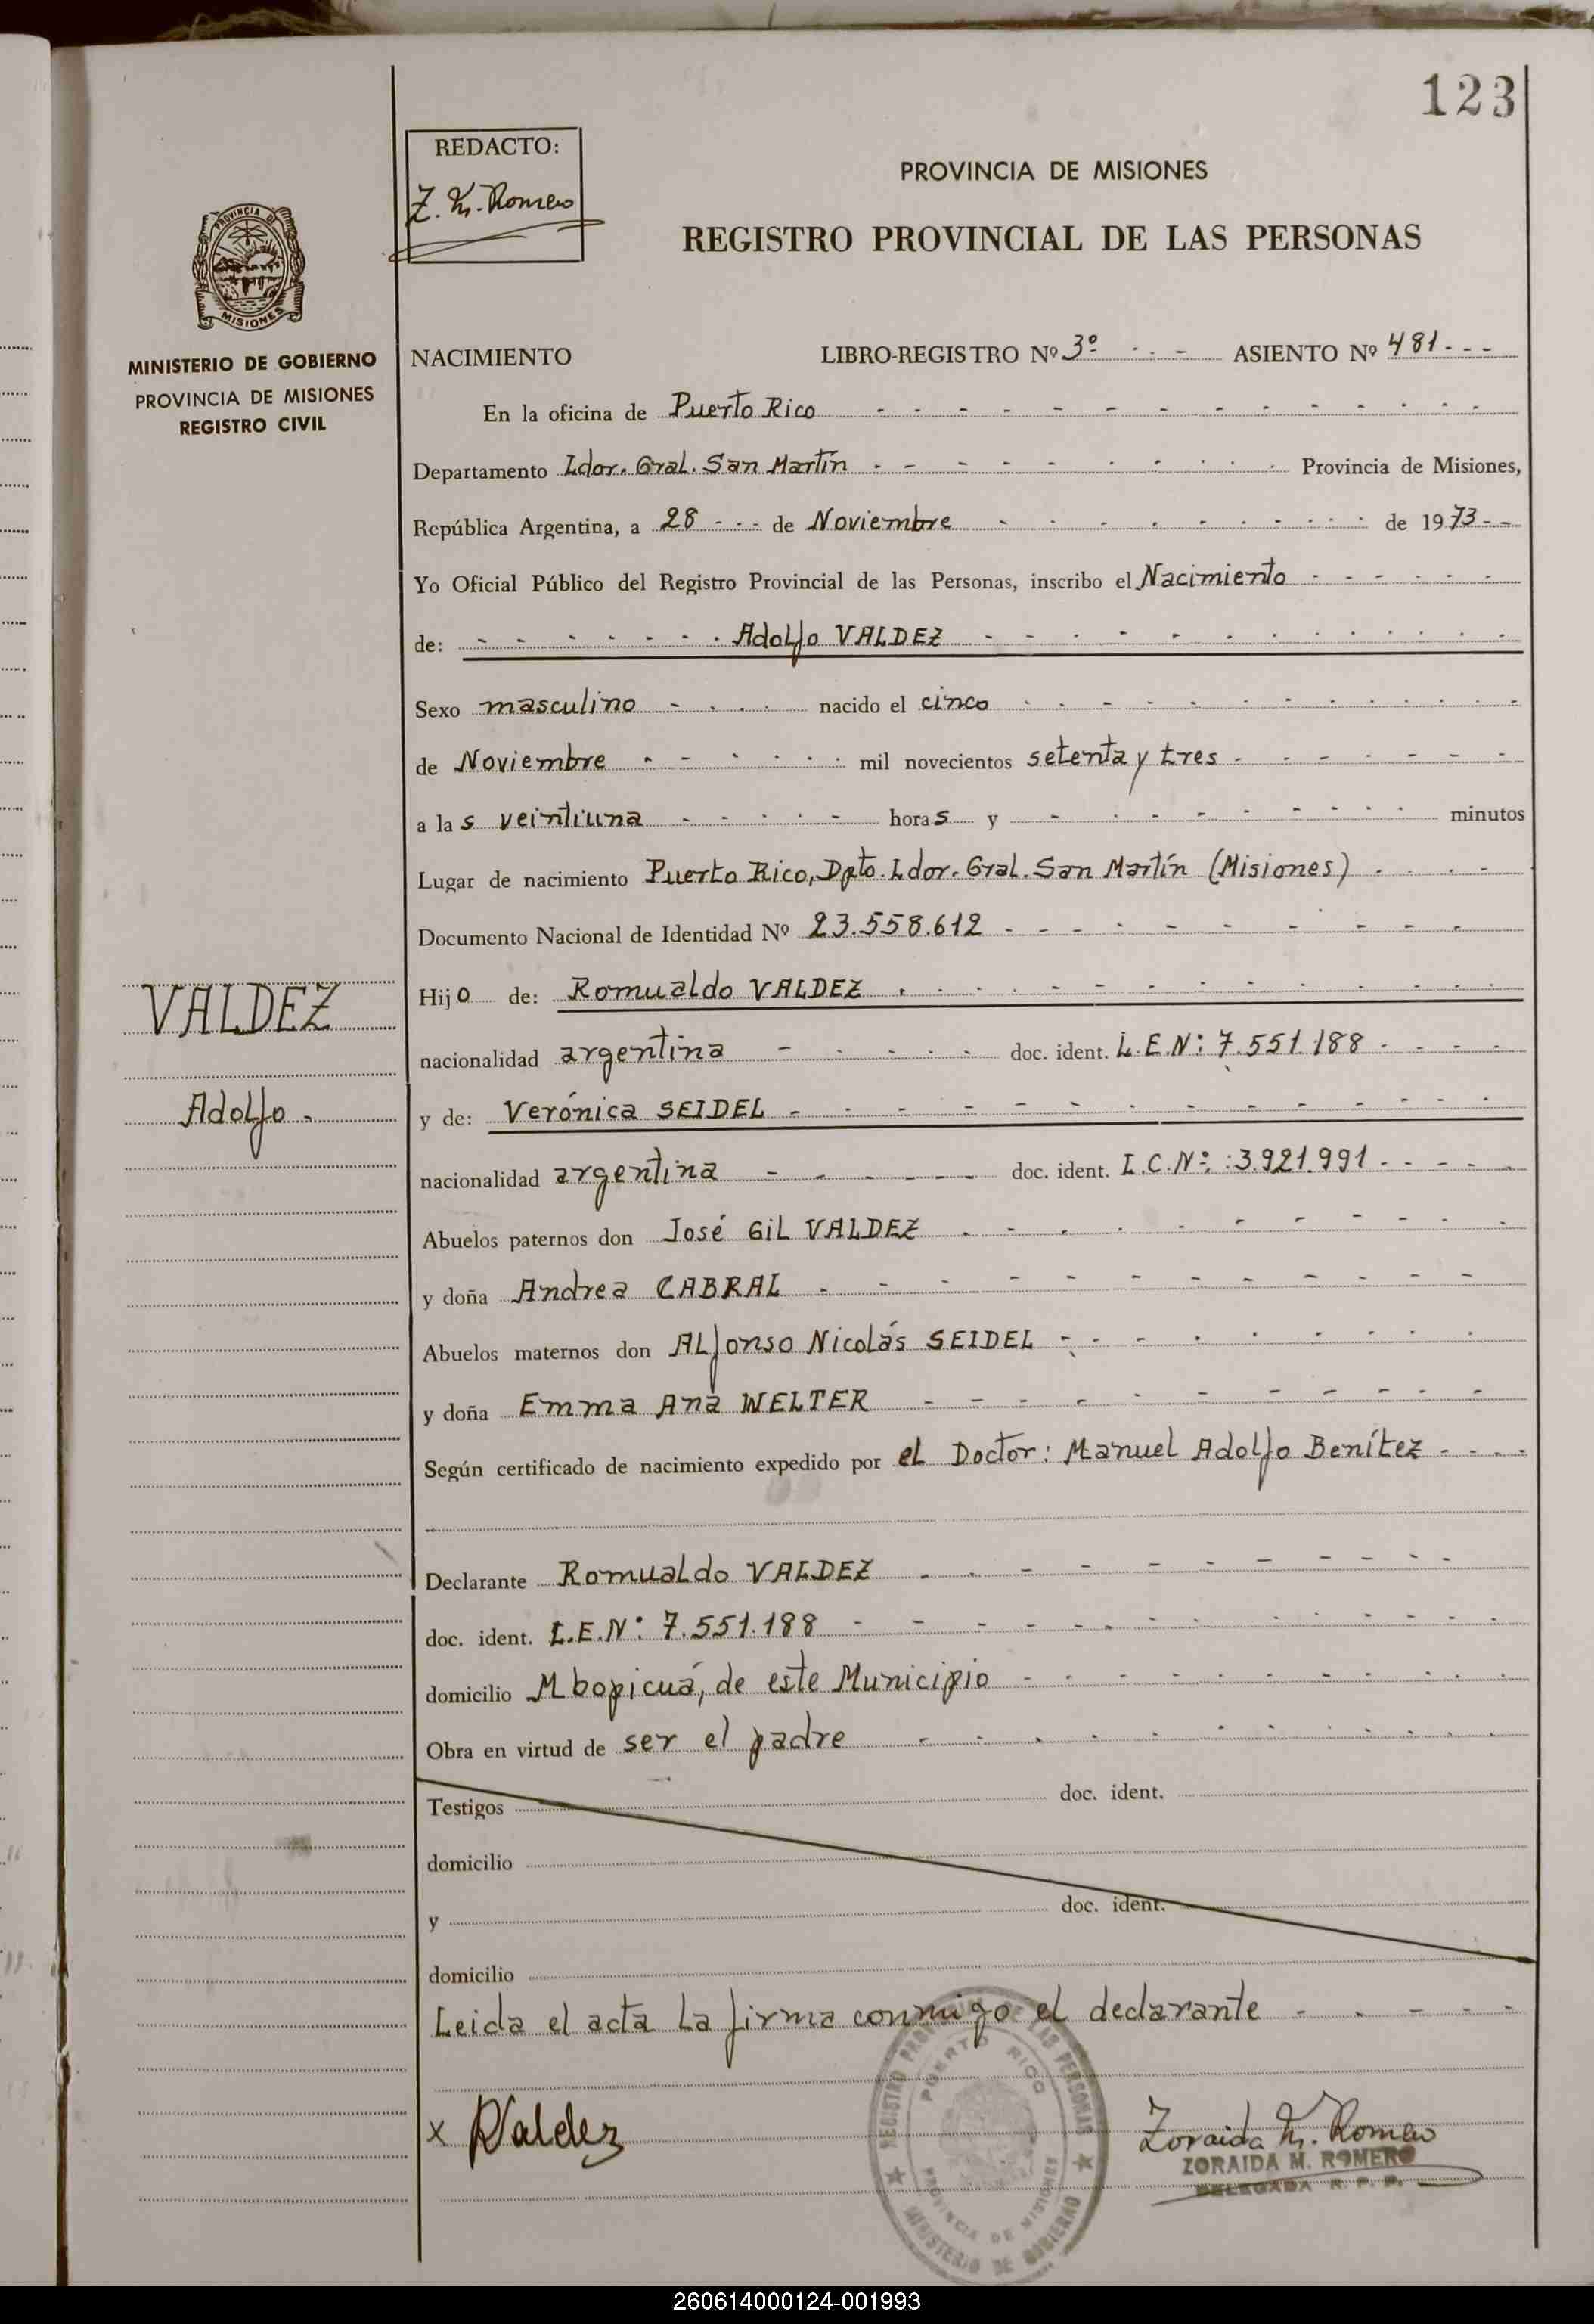 123
REDACTO:
Z. M. Romero
PROVINCIA DE MISIONES
REGISTRO PROVINCIAL DE LAS PERSONAS
PROVINCIA DE
MISIONES
MINISTERIO DE GOBIERNO
PROVINCIA DE MISIONES
REGISTRO CIVIL
NACIMIENTO LIBRO-REGISTRO Nº 3º - - - ASIENTO Nº 481 - - -
En la oficina de Puerto Rico
Departamento Ldor. Gral. San Martín Provincia de Misiones,
República Argentina, a 28 - - - de Noviembre de 1973 - -
Yo Oficial Público del Registro Provincial de las Personas, inscribo el Nacimiento
de: Adolfo VALDEZ
Sexo masculino nacido el cinco
de Noviembre mil novecientos setenta y tres
a las veintiuna horas y minutos
Lugar de nacimiento Puerto Rico, Dpto. Ldor. Gral. San Martín (Misiones)
Documento Nacional de Identidad Nº 23.558.612
VALDEZ
Adolfo
Hijo de: Romualdo VALDEZ
nacionalidad argentina doc. ident. L.E.Nº: 7.551.188
y de: Verónica SEIDEL
nacionalidad argentina doc. ident. L.C.Nº: 3.921.991
Abuelos paternos don José Gil VALDEZ
y doña Andrea CABRAL
Abuelos maternos don Alfonso Nicolás SEIDEL
y doña Emma Ana WELTER
Según certificado de nacimiento expedido por el Doctor: Manuel Adolfo Benítez
Declarante Romualdo VALDEZ
doc. ident. L.E.Nº: 7.551.188
domicilio Mbopicuá, de este Municipio
Obra en virtud de ser el padre
Testigos doc. ident.
domicilio
y doc. ident.
domicilio
Leida el acta la firma conmigo el declarante
x RValdez
REGISTRO PROVINCIAL DE LAS PERSONAS
PUERTO RICO
PROVINCIA DE MISIONES
MINISTERIO DE GOBIERNO
Zoraida M. Romero
ZORAIDA M. ROMERO
DELEGADA R. P. P.
260614000124-001993